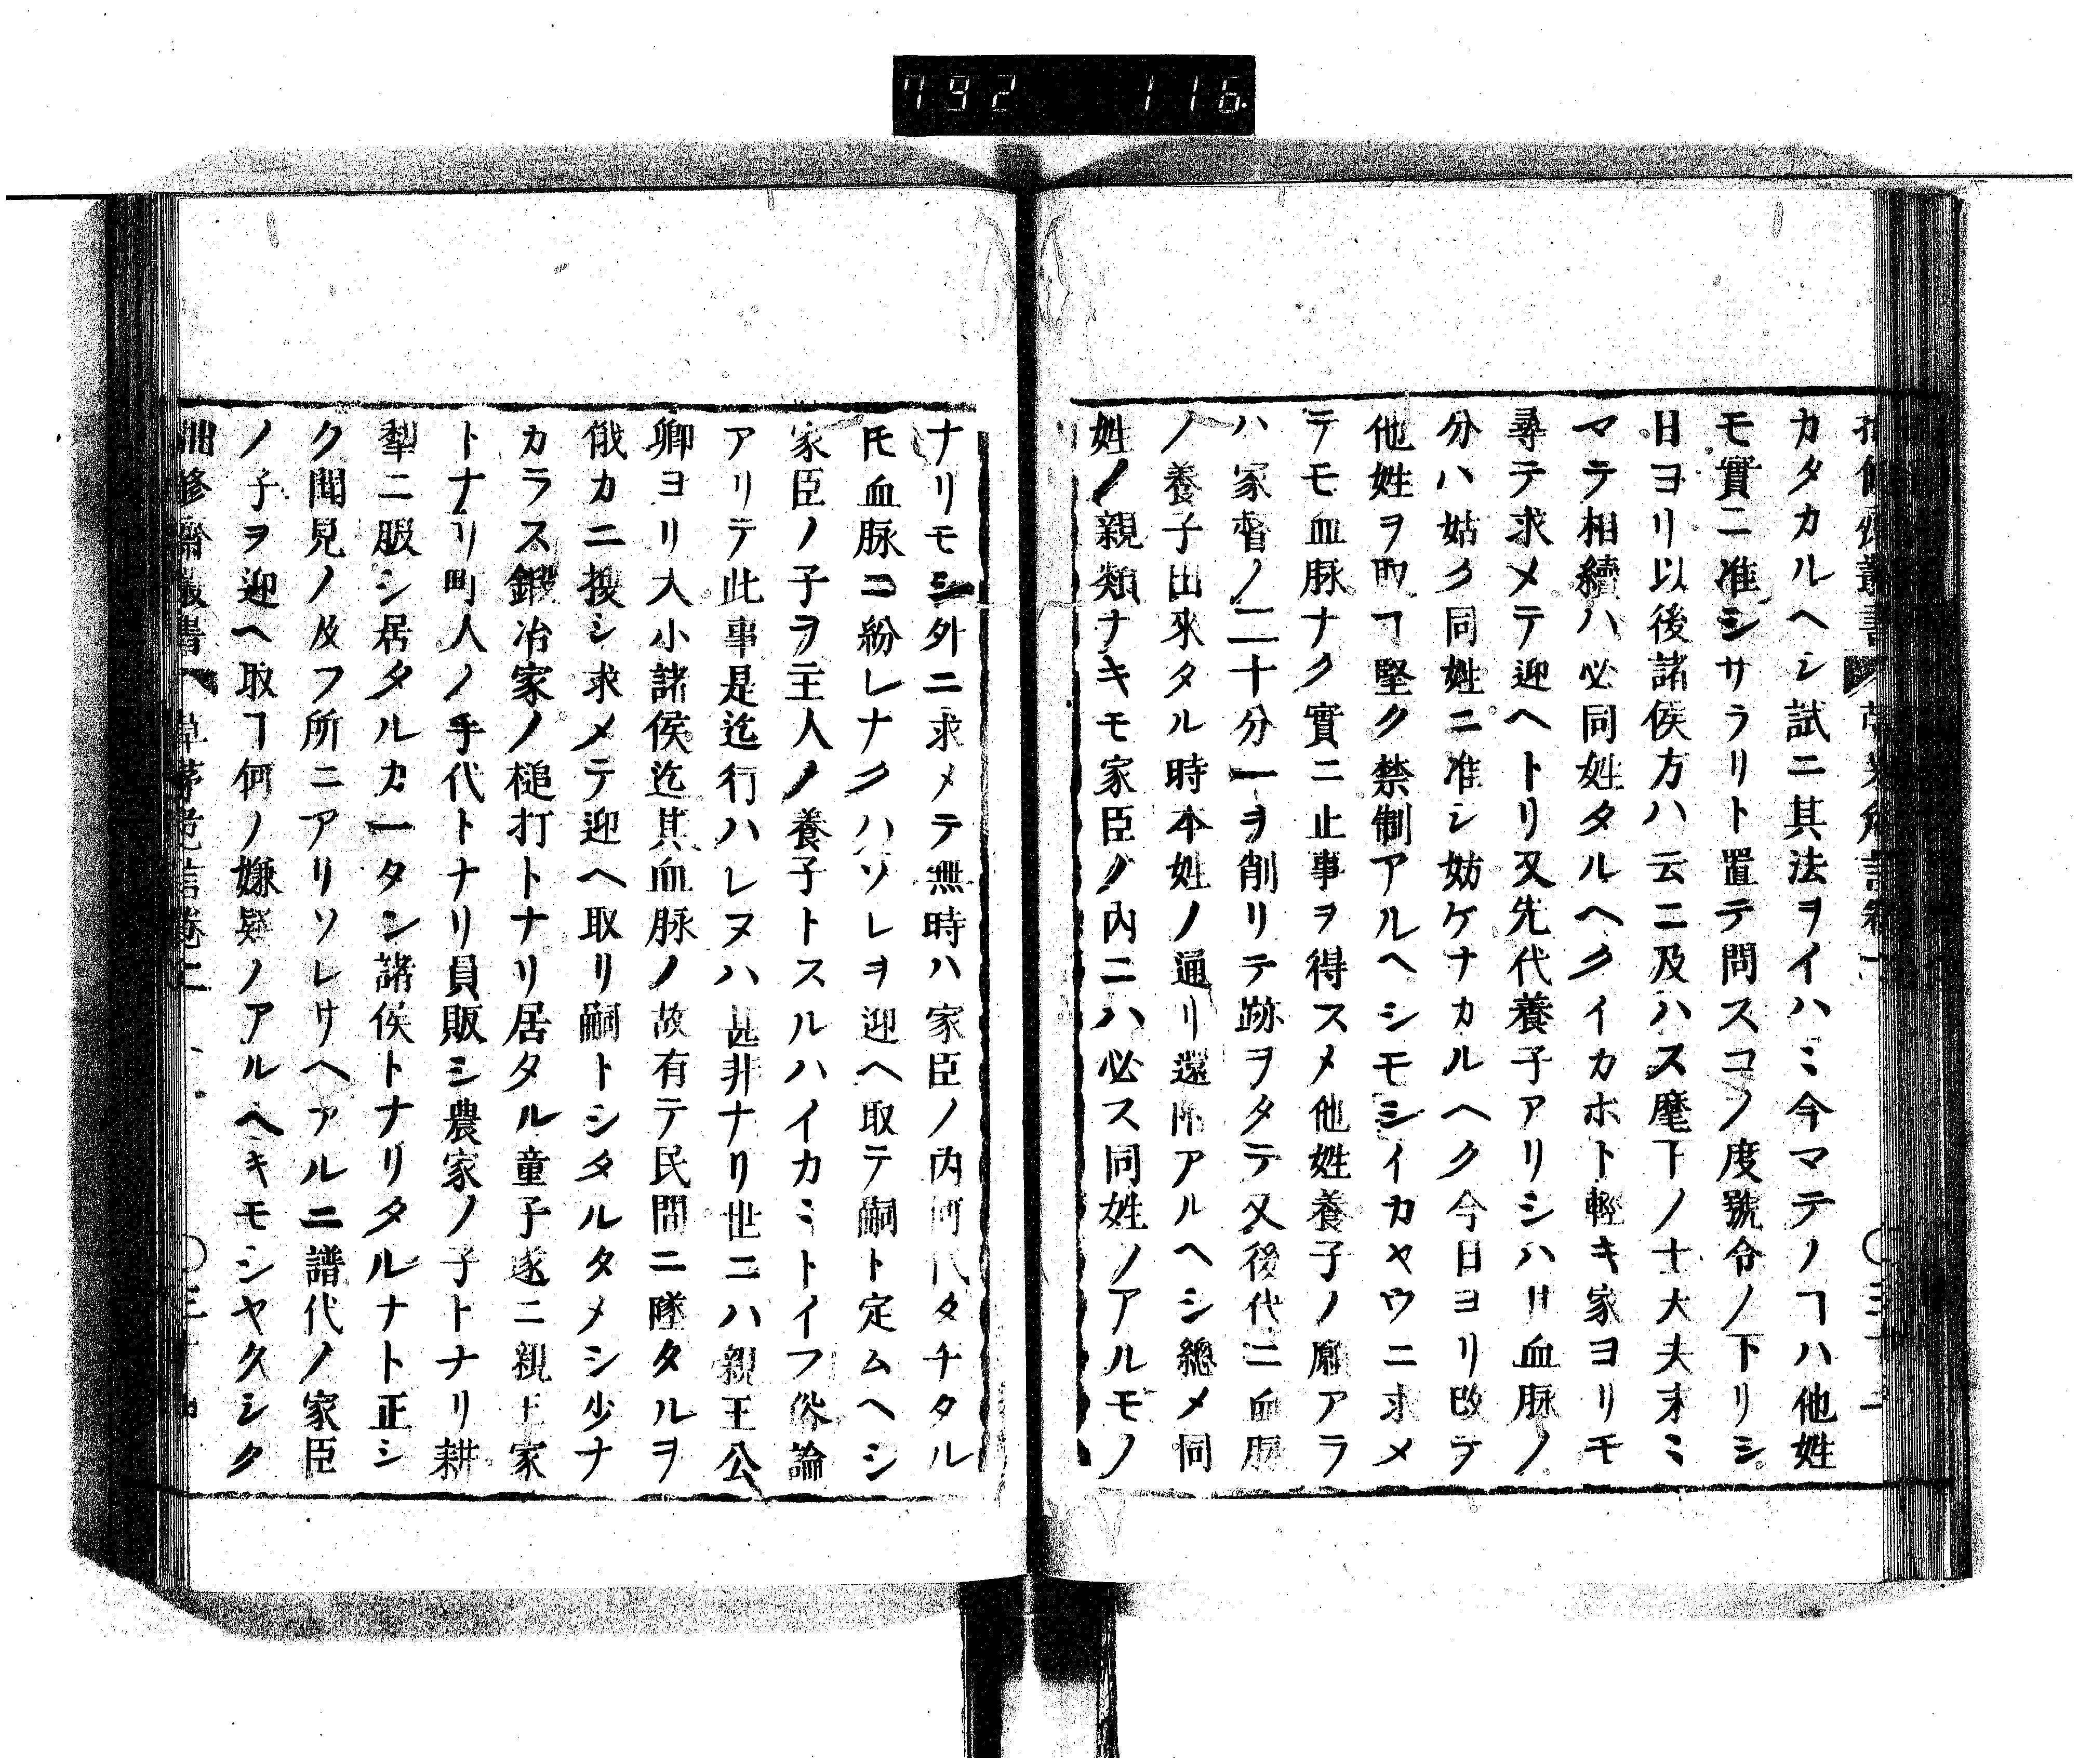 792 116
カタカルヘシ試ニ其法ヲイハミ今マテノヿハ他姓
モ實ニ准シサラリト置テ問スコノ度號令ノ下リシ
日ヨリ以後諸侯方ハ云ニ及ハス麾下ノ士大夫末ミ
マテ相續ハ必同姓タルヘクイカホト輕キ家ヨリモ
尋テ求メテ迎ヘトリ又先代養子アリシハ其血脉ノ
分ハ姑ク同姓ニ准シ妨ケナカルヘク今日ヨリ改テ
他姓ヲ取ヿ堅ク禁制アルヘシモシイカヤウニ求メ
テモ血脉ナク實ニ止事ヲ得スメ他姓養子ノ願アラ
ハ家督ノ二十分一ヲ削リテ跡ヲタテ又後代ニ血脉
ノ養子出來タル時本姓ノ通リ還附アルヘシ總メ同
姓ノ親類ナキモ家臣ノ內ニハ必ス同姓ノアルモノ
ナリモシ外ニ求メテ無時ハ家臣ノ内何代タチタル
氏血脉ニ紛レナクハソレヲ迎ヘ取テ嗣ト定ムヘシ
家臣ノ子ヲ主人ノ養子トスルハイカミトイフ俗論
アリテ此事是迄行ハレヌハ甚非ナリ世ニハ親王公
卿ヨリ大小諸侯迄其血脉ノ故有テ民間ニ墜タルヲ
俄カニ搜シ求メテ迎ヘ取リ嗣トシタルタメシ少ナ
カラス鍛冶家ノ槌打トナリ居タル童子遂ニ親王家
トナリ町人ノ手代トナリ員販シ農家ノ子トナリ耕
犂ニ服シ居タルカ一タン諸侯トナリタルナト正シ
ク聞見ノ及フ所ニアリソレサヘアルニ譜代ノ家臣
ノ子ヲ迎ヘ取ヿ何ノ嫌疑ノアルヘキモシヤ久シク
修齋叢書 草茅危言卷二